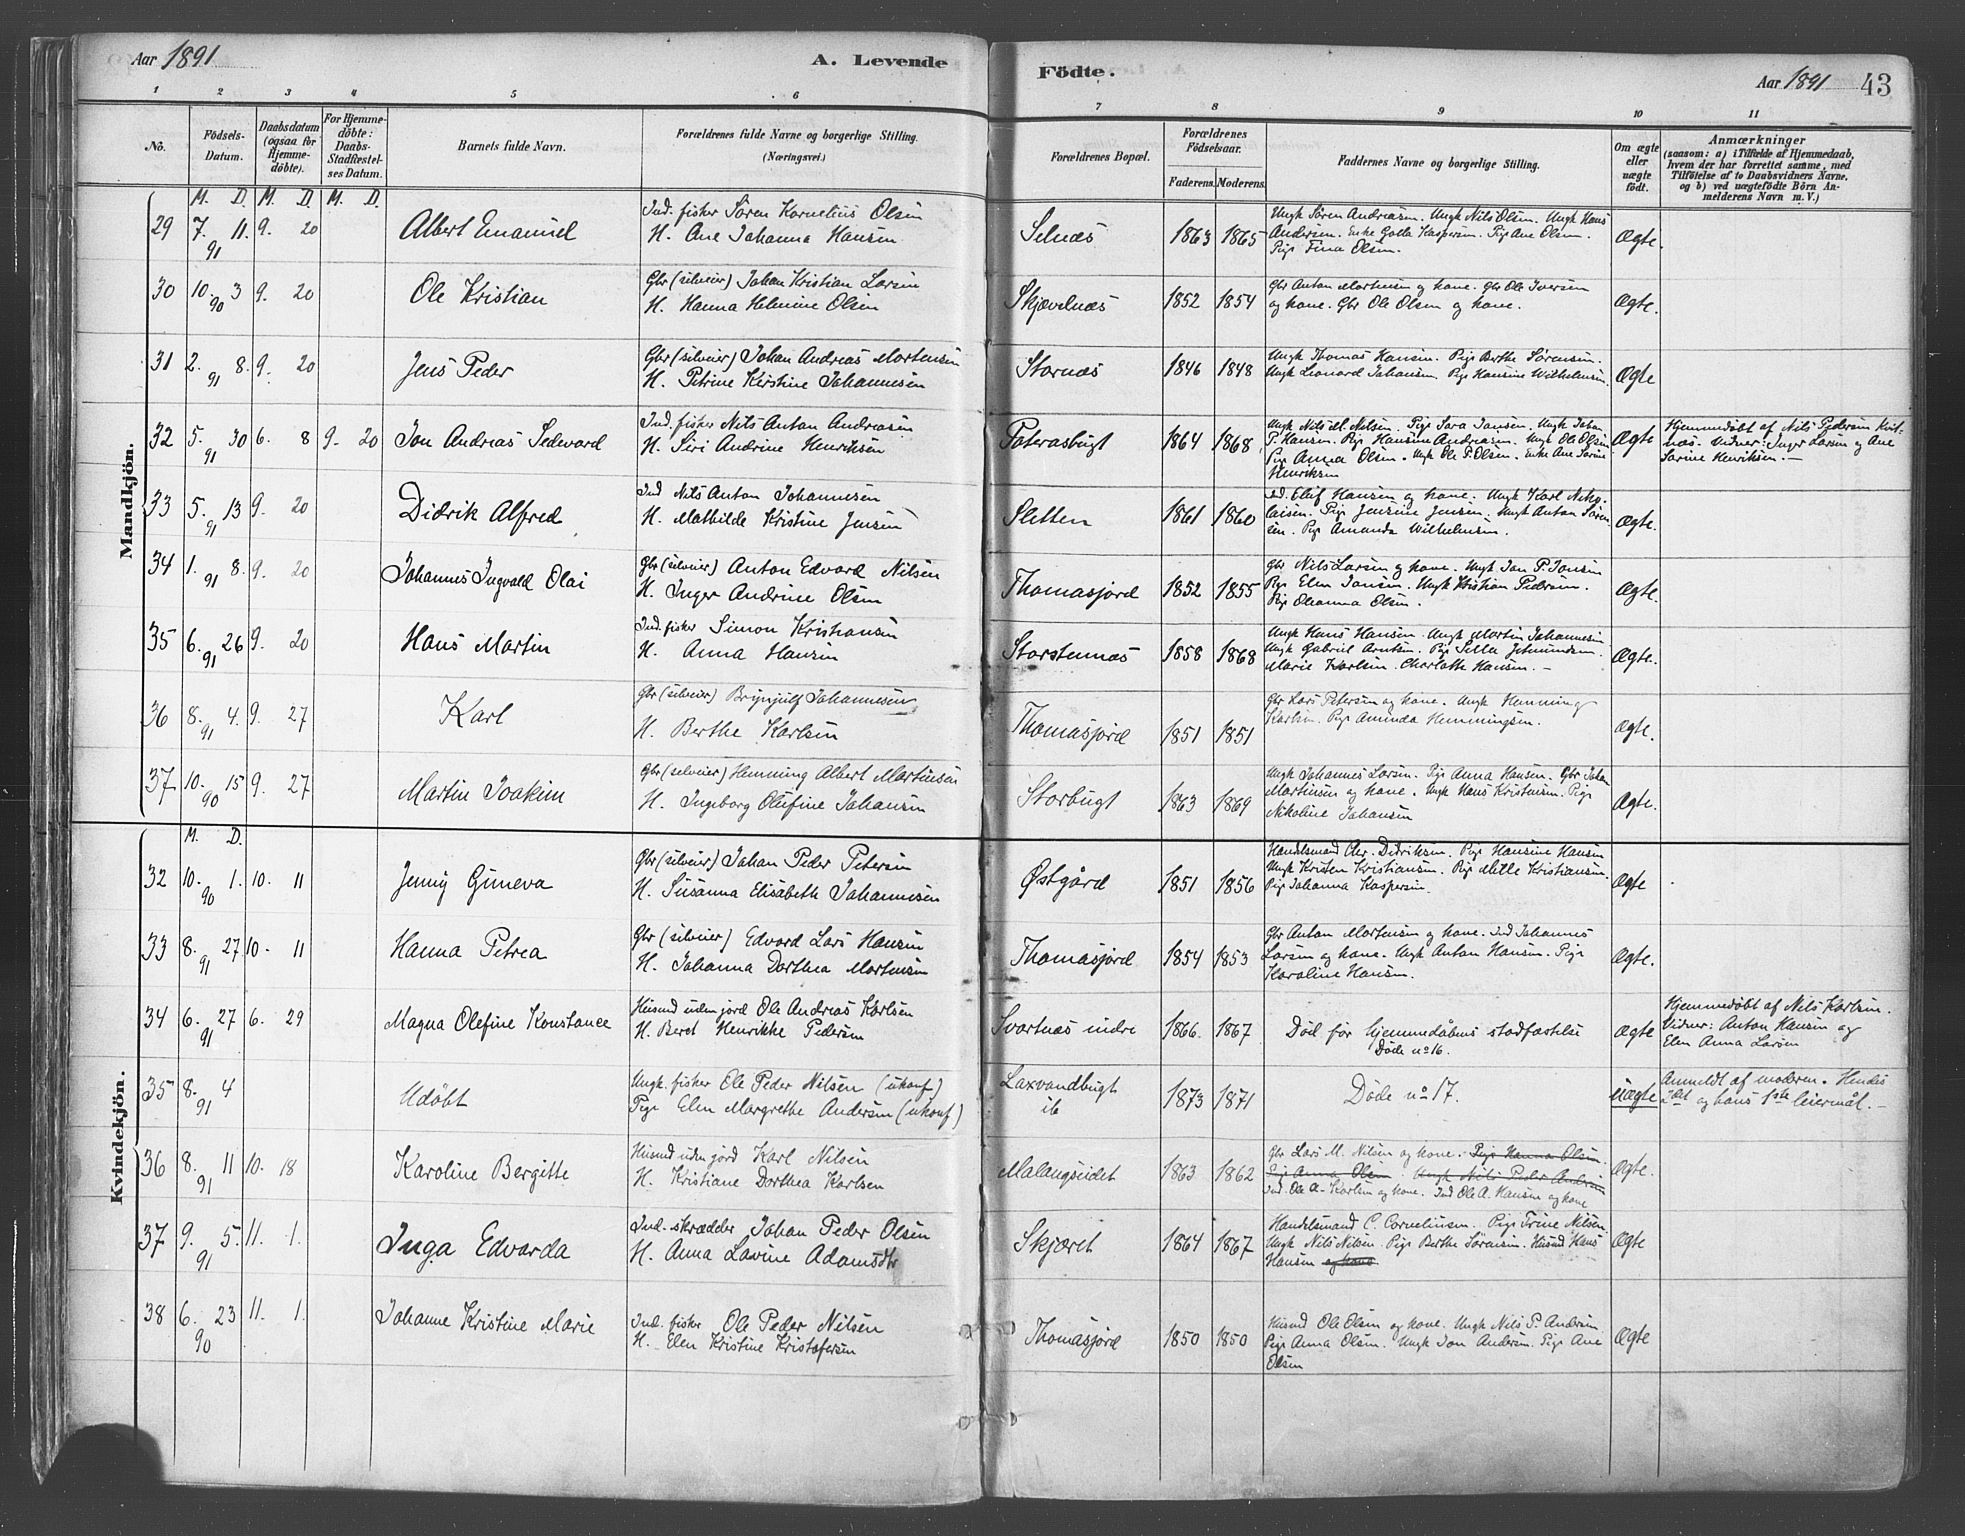 Aar 1891 A. Levende
Födte. Aar 1891 43
1 2 3 4 5 6 7 8 9 10 11
No. Födsels-Datum. Daabsdatum (ogsaa for Hjemmedöbte). For Hjemmedöbte: Daabs-Stadfæstelses Datum. Barnets fulde Navn. Forældrenes fulde Navne og borgerlige Stilling. (Næringsvei.) Forældrenes Bopæl. Forældrenes Födselsaar. Faderens. Moderens. Faddernes Navne og borgerlige Stilling. Om ægte eller uægte födt. Anmærkninger (saasom: a) i Tilfælde af Hjemmedaab, hvem der har forrettet samme, med Tilföielse af to Daabsvidners Navne, og b) ved uægtefödte Börn Anmelderens Navn m. V.)
Mandkjön.
M. D. M. D. M. D.
29 7. 11. 91 9. 20 Albert Emanuel Ind. fisker Sören Kornelius Olsen
H. Ane Johanna Hansen Selnæs 1863 1865 Ungk Sören Andreasen. Ungk Nils Olsen. Ungk Hans
Andersen. Enke Golla Kaspersen. Pige Ane Olsen.
Pige Fina Olsen. Ægte.
30 10. 3 90 9. 20 Ole Kristian Gbr (selveier) Johan Kristian Larsen
H. Hanna Helmine Olsen Skjævelnæs 1852 1854 Gbr Anton Mortensen og kone. Gbr Ole Iversen
og kone. Gbr Ole Olsen og kone. Ægte.
31 2. 8. 91 9. 20 Jens Peder Gbr (selveier) Johan Andreas Mortensen
H. Petrine Kirstine Johannesen Stornæs 1846 1848 Ungk Thomas Hansen. Pige Berthe Sörensen.
Ungk Leonard Johansen. Pige Hansine Wilhelmsen. Ægte
32 5. 30 91 6. 8 9. 20 Jon Andreas Sedevard Ind. fisker Nils Anton Andreasen
H. Siri Andrine Henriksen Paterasbugt 1864 1868 Ungk Nils M. Nilsen. Pige Sara Jansen. Ungk Johan
P. Hansen. Pige Hansine Andreasen. Ungk Ole Olsen
Pige Anna Olsen. Ungk Ole P. Olsen. Enke Ane Sarine
Henriksen Ægte Hjemmedøbt af Nils Pedersen Kvit-
næs. Vidner: Inger Larsen og Ane
Sarine Henriksen. —
33 5. 13 91 9. 20 Didrik Alfred Ind Nils Anton Johannesen
H. Mathilde Kristine Jensen Sletten 1861 1860 Ind. Eluf Hansen og kone. Ungk Karl Niko-
laisen. Pige Jensine Jensen. Ungk Anton Sören
sen. Pige Amanda Wilhelmsen. Ægte.
34 1. 8. 91 9. 20 Johannes Ingvald Olai Gbr (selveier) Anton Edvard Nilsen
H. Inger Andrine Olsen Thomasjord 1852 1855 Gbr Nils Larsen og kone. Ungk Jon P. Jonsen
Pige Elen Jansen. Ungk Kristian Pedersen.
Pige Oleanna Olsen. Ægte.
35 6. 26 91 9. 20 Hans Martin Ind. fisker Simon Kristiansen
H. Anna Hansen Storstennæs 1858 1868 Ungk Hans Hansen. Ungk Martin Johannesen
Ungk Gabriel Arntsen. Pige Sella
Marie Karlsen. Charlotte Hansen. — Ægte.
36 8. 4. 91 9. 27 Karl Gbr (selveier) Brynjulf Johannesen
H. Berthe Karlsen Thomasjord 1851 1851 Gbr Lars Petersen og kone. Ungk Henning
Karlsen. Pige Aminda Hemmingsen. Ægte.
37 10. 15 90 9. 27 Martin Joakim Gbr (selveier) Henning Albert Martinsen
H. Ingeborg Olufine Johansen Storbugt 1863 1869 Ungk Johannes Larsen. Pige Anna Hansen. Gbr Johan
Martinsen og kone. Ungk Hans Kristensen. Pige
Nikoline Johansen Ægte.
Kvindekjön.
M. D.
32 10. 1. 90 10. 11 Jenny Guneva Gbr (selveier) Johan Peder Petersen
H. Susanna Elisabeth Johannesen Østgård 1851 1856 Handelsmand Chr. Didriksen. Pige Hansine Hansen
Ungk Kristen Kristiansen. Pige Mette Kristiansen.
Pige Johanna Kaspersen. Ægte
33 8. 27 91 10. 11 Hanna Petrea Gbr (selveier) Edvard Lars Hansen
H. Johanna Dorthea Mortensen Thomasjord 1854 1853 Gbr Anton Mortensen og kone. Ind Johannes
Larsen og kone. Ungk Anton Hansen. Pige
Karoline Hansen. Ægte.
34 6. 27 91 6. 29 Magna Olefine Konstance Husmd uden jord Ole Andreas Karlsen
H. Beret Henrikke Pedersen Svartnæs indre 1866. 1867 Død før hjemmedåbens stadfæstelse
Døde no 16. Ægte Hjemmedøbt af Nils Karlsen.
Vidner: Anton Hansen og
Elen Anna Larsen
35 8. 4 91 Udøbt Ungk. fisker Ole Peder Nilsen (ukonf)
Pige Elen Margrethe Andersen (ukonf) Laxvandbugt
ib 1873 1871 Døde no 17. Uægte Anmeldt af moderen. Hendes
2det og hans 1ste leiermål. —
36 8. 11 91 10. 18 Karoline Bergitte Husmd uden jord Karl Nilsen
H. Kristiane Dorthea Karlsen Malangseidet 1863 1862 Gbr Lars M. Nilsen og kone. Pige Hanna Olsen.
Pige Anna Olsen. Ungk Nils Peder Andersen
Ind. Ole A. Karlsen og kone. Ind Ole A. Hansen og kone Ægte.
37 9. 5. 91 11. 1. Inga Edvarda Ind. skrædder Johan Peder Olsen
H. Anna Lavine Adamsdtr Skjæret 1864 1867 Handelsmand C. Corneliusen. Pige Trine Nilsen
Ungk Nils Nilsen. Pige Berthe Sörensen. Husmd Hans
Hansen og kone Ægte
38 6. 23 90 11. 1. Johanne Kristine Marie Ind. fisker Ole Peder Nilsen
H. Elen Kristine Kristofersen Thomasjord 1850 1850 Husmd Ole Olsen og kone. Ungk Nils P. Andersen
Pige Anna Olsen. Ungk Jon Andersen. Pige Ane
Olsen Ægte